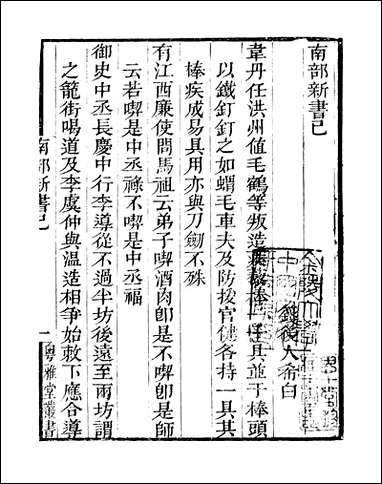 南部新書己
錢後人希白
韋丹任洪州值毛鶴等叛造蒺藜棒一千具並于棒頭
以鐵釘釘之如蝟毛車夫及防援官健各持一具其
棒疾成易具用亦與刀劒不殊
有江西廉使問馬祖云弟子喫酒肉卽是不喫卽是師
云若喫是中丞祿不喫是中丞福
御史中丞長慶中行李導從不過半坊後遠至兩坊謂
之籠街喝道及李虞仲與温造相爭始敕下應合導
南部新書己
一
粤雅堂叢書